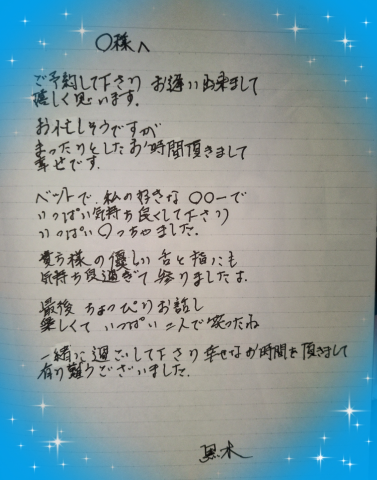 〇様へ
ご予約して下さり お逢い出来まして
嬉しく思います.
お忙しそうですが
まったりとしたお時間頂きまして
幸せです.
ベットで、私の好きな〇〇ーで
いっぱい気持ち良くして下さり
いっぱい〇っちゃました.
貴方様の優しい舌と指にも
気持ち良過ぎて参りましたよ.
最後 ちょっぴりお話し
楽しくて いっぱい 二人で笑ったね
一緒に過ごして下さり幸せなお時間を頂きまして
有り難うございました.
黒木